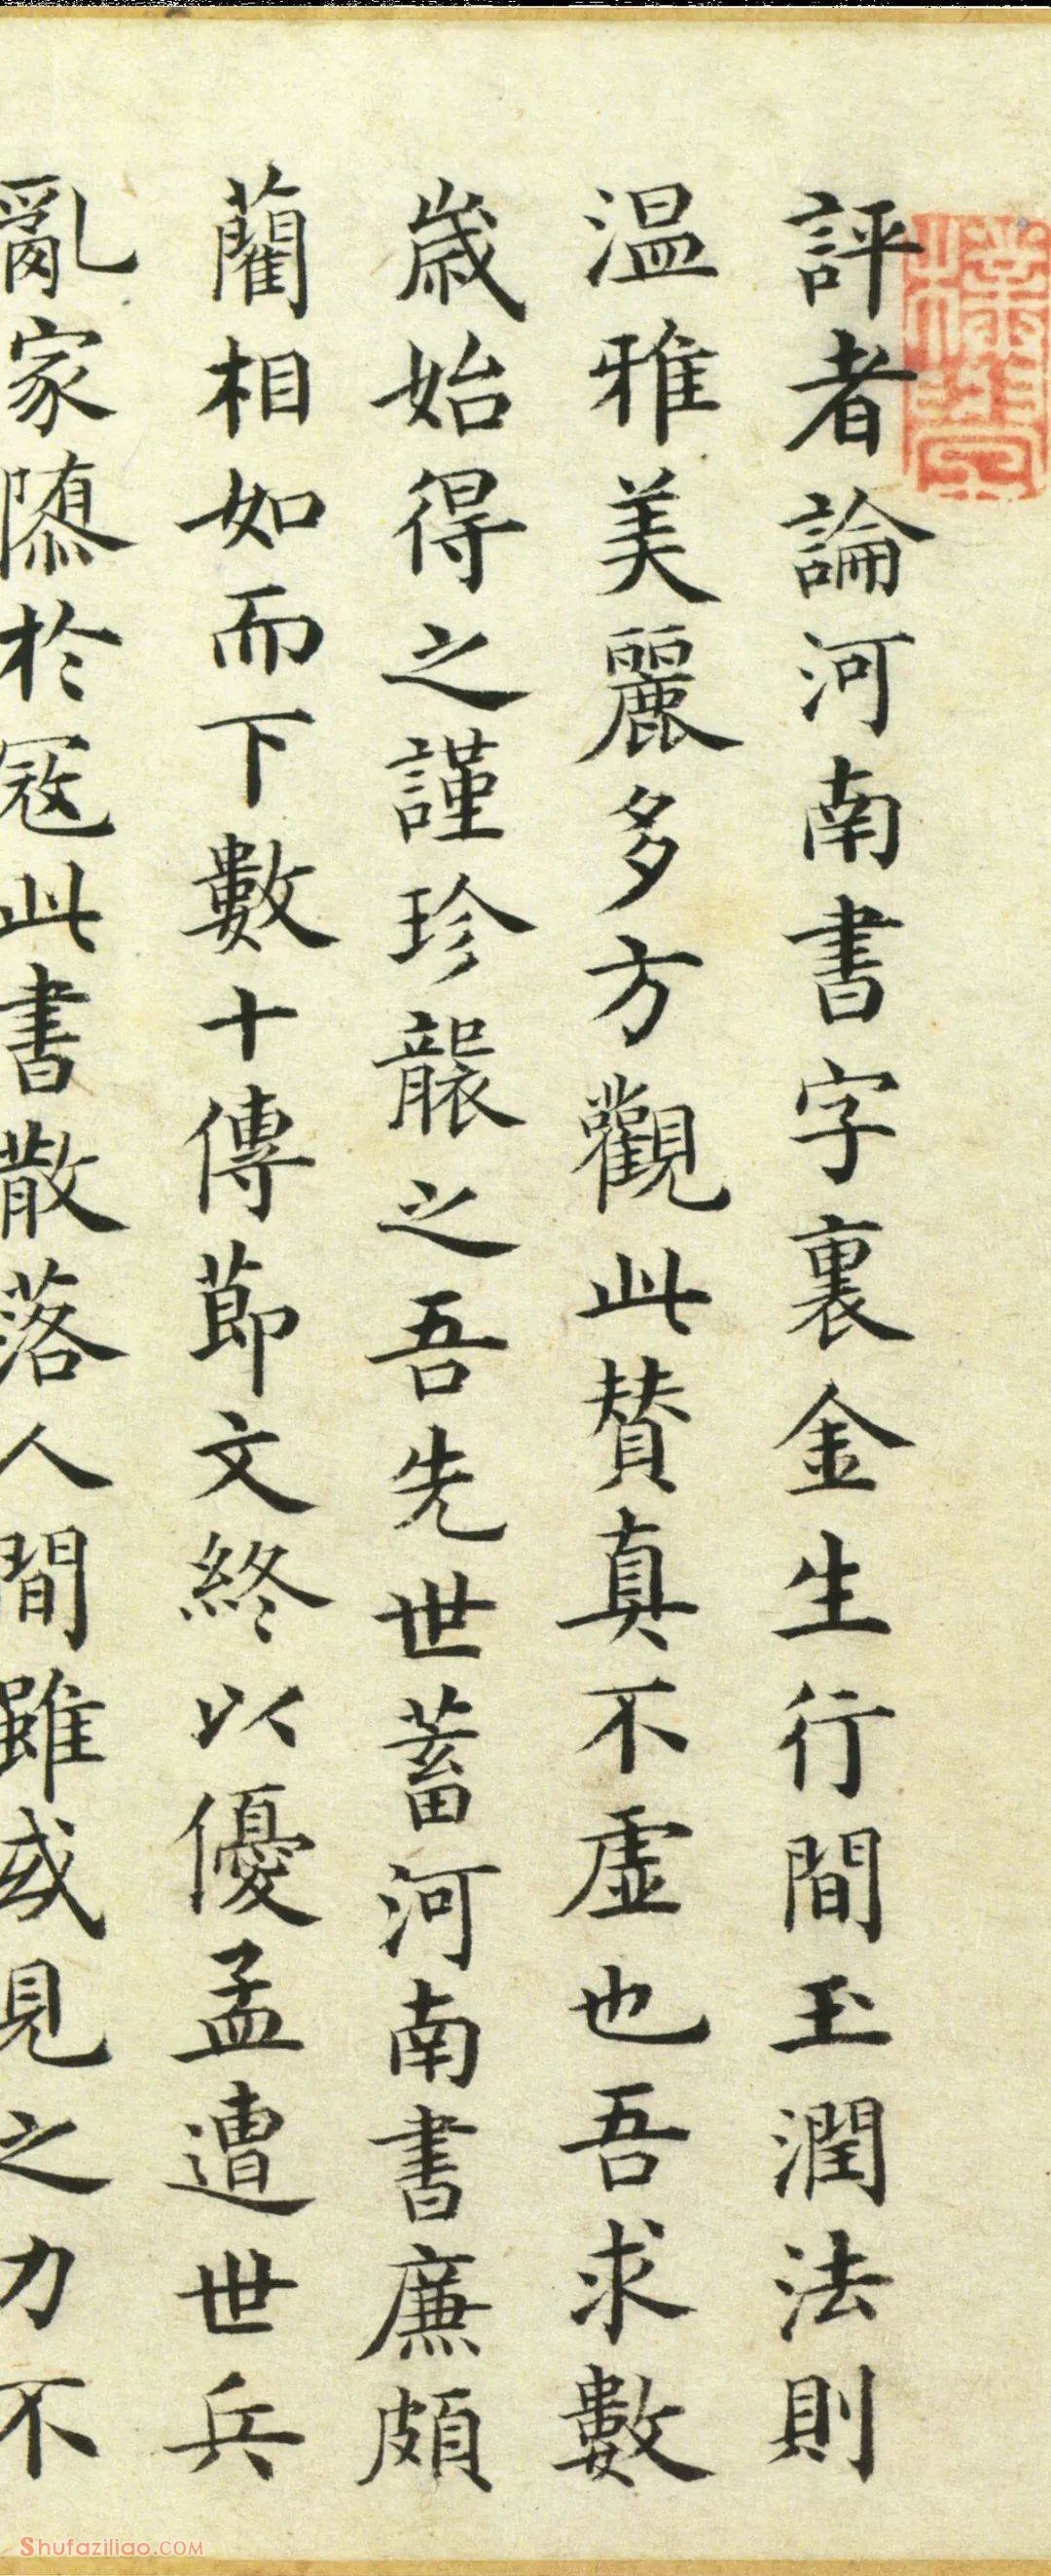 評者論河南書字裏金生行間玉潤法則
温雅美麗多方觀此賛真不虛也吾求數
歳始得之謹珍襲之吾先世蓄河南書廉頗
藺相如而下數十傳莭文終以優孟遭世兵
亂家隳於冦此書散落人間雖或見之力不
Shufaziliao.COM